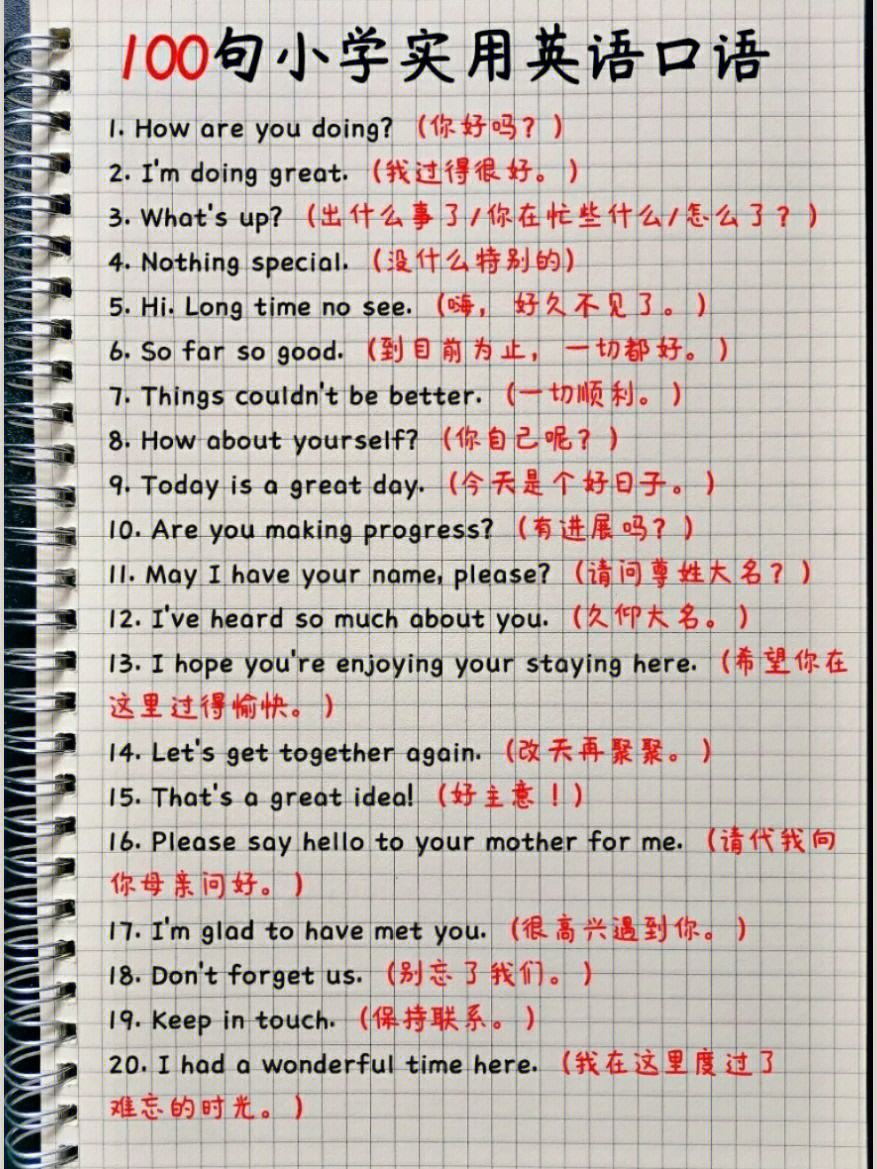 100句小学实用英语口语
1. How are you doing? (你好吗？)
2. I'm doing great. (我过得很好。)
3. What's up? (出什么事了/你在忙些什么/怎么了？)
4. Nothing special. (没什么特别的)
5. Hi. Long time no see. (嗨， 好久不见了。)
6. So far so good. (到目前为止， 一切都好。)
7. Things couldn't be better. (一切顺利。)
8. How about yourself? (你自己呢？)
9. Today is a great day. (今天是个好日子。)
10. Are you making progress? (有进展吗？)
11. May I have your name, please? (请问尊姓大名？)
12. I've heard so much about you. (久仰大名。)
13. I hope you're enjoying your staying here. (希望你在
这里过得愉快。)
14. Let's get together again. (改天再聚聚。)
15. That's a great idea! (好主意！)
16. Please say hello to your mother for me. (请代我向
你母亲问好。)
17. I'm glad to have met you. (很高兴遇到你。)
18. Don't forget us. (别忘了我们。)
19. Keep in touch. (保持联系。)
20. I had a wonderful time here. (我在这里度过了
难忘的时光。)